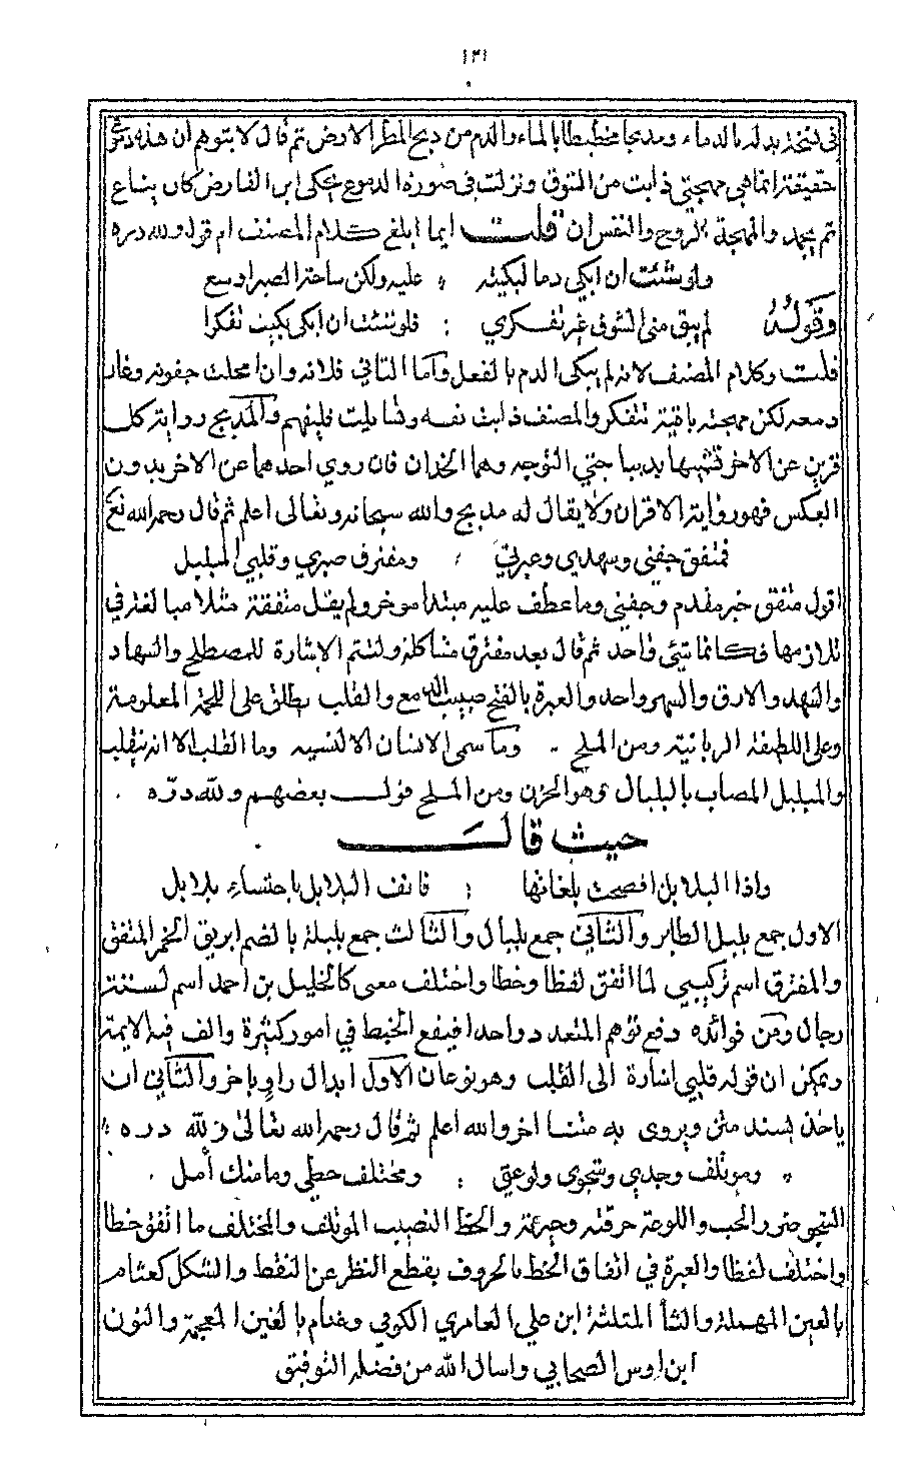 ١٣١
في نسخة بدله بالدماء ومدبجا مخططا بالماء والدم من دبج المطر الارض ثم قال لا يتوهم ان هذه دموع
حقيقة انما هي مهجتي ذابت من الشوق ونزلت في صورة الدموع يحكى ابن الفارض كان يتباع
ثم يجمد والمهجة الروح والنفس ان قلت ايما ابلغ كلام المصنف ام قوله ولله دره
ولو شئت ان ابكي دما لبكيته ؛ عليه ولكن ساحة الصبر اوسع
وقوله لم يبق مني الشوق غير تفكري ؛ فلو شئت ان ابكي بكيت تفكرا
قلت وكلام المصنف لانه لم يبكي الدم بالفعل وأما الثاني فلانه وان امحلت جفونه وغار
دمعه لكن مهجته باقية تتفكر والمصنف ذابت نفسه وتسايلت فليفهم والمدبج رواية كل
قرين عن الاخر تشبيها بديباجتي الوجه وهما الخدان فان روي احدهما عن الاخر بدون
العكس فهو رواية الاقران ولا يقال له مدبج والله سبحانه وتعالى اعلم ثم قال رحمه الله تع
فمتفق جفني وسهدي وعبرتي ؛ ومفترق صبري وقلبي المبلبل
اقول متفق خبر مقدم وجفني وما عطف عليه مبتدا موخر ولم يقل متفقة مثلا مبالغة في
تلازمها فكانما شئ واحد ثم قال بعد مفترق مشاكلة ولتتم الاشارة للمصطلح والسهاد
والسهد والارق والسهر واحد والعبرة بالفتح صبيب الدمع والقلب يطلق على اللحمة المعلومة
وعلى اللطيفة الربانية ومن الملح . وما سمى الانسان الا لنسيه وما القلب الا انه يتقلب
والمبلبل المصاب بالبلبال وهو الحزن ومن الملح قول بعضهم ولله دره .
حيث قال
واذا البلابل افصحت بلغاتها ؛ فانف البلابل باحتساء بلابل
الاول جمع بلبل الطاير والثاني جمع بلبال والثالث جمع بلبلة بالضم ابريق الخمر المتفق
والمفترق اسم تركيبي لما اتفق لفظا وخطا واختلف معنى كالخليل بن احمد اسم لستة
رجال ومن فوائده دفع توهم المتعدد واحدا فيقع الخبط في امور كثيرة والف فيه الايمة
ويمكن ان قوله قلبي اشارة الى القلب وهو نوعان الاول ابدال راو باخر والثاني ان
ياخذ بسند متن ويروى به متنا اخر والله اعلم ثم قال رحمه الله تعالى ولله دره ؛
؛ وموتلف وجدي وشجوى ولوعتي ؛ ومختلف حظي وما منك أمل .
الشجو ضرر الحب واللوعة حرقته وحيرته والحظ النصيب الموتلف والمختلف ما اتفق خطا
واختلف لفظا والعبرة في اتفاق الخط بالحروف بقطع النظر عن النقط والشكل كعثام
بالعين المهملة والثأ المثلثة ابن علي العامري الكوفي وغنام بالغين المعجمة والنون
ابن اوس الصحابي واسال الله من فضله التوفيق